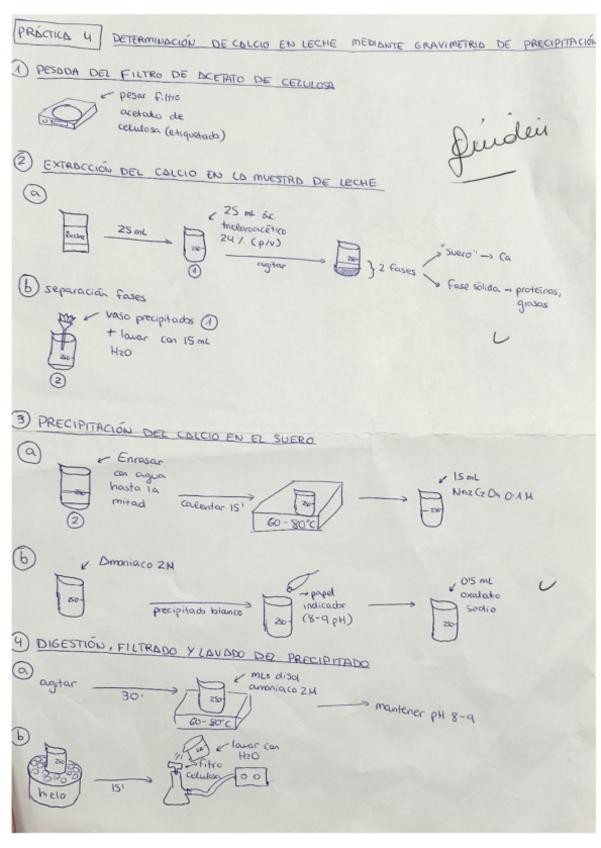 PRÁCTICA 4 DETERMINACIÓN DE CALCIO EN LECHE MEDIANTE GRAVIMETRIA DE PRECIPITACIÓN
1 PESADA DEL FILTRO DE ACETATO DE CELULOSA
pesar filtro
acetato de
celulosa (etiquetado)
2 EXTRACCIÓN DEL CALCIO EN LA MUESTRA DE LECHE
a
leche
25 mL
250
1
25 mL ác.
tricloroacético
24% (p/v)
agitar
250
2 fases
"suero" → Ca
Fase sólida → proteínas,
grasas
b separación fases
vaso precipitados 1
+ lavar con 15 mL
H2O
250
2
3 PRECIPITACIÓN DEL CALCIO EN EL SUERO
a
Enrasar
con agua
hasta la
mitad
250
2
calentar 15'
250
60-80ºC
15 mL
Na2C2O4 0'1M
250
b
Amoniaco 2M
250
precipitado blanco
papel
indicador
(8-9 pH)
250
0'5 mL
oxalato
sodio
250
4 DIGESTIÓN, FILTRADO Y LAVADO DEL PRECIPITADO
a
agitar
30'
250
60-80ºC
mLs disol
amoniaco 2M
mantener pH 8-9
b
250
hielo
15'
lavar con
H2O
filtro
celulosa